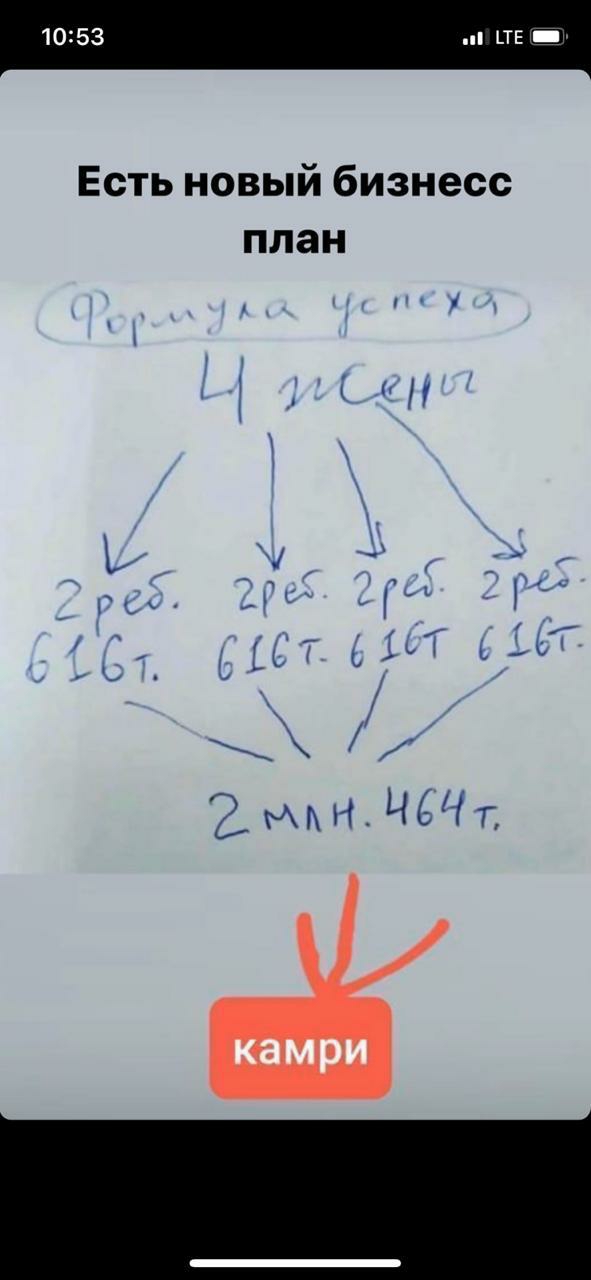 10:53
LTE
Есть новый бизнесс
план
Формула успеха
4 жены
2 реб. 2 реб. 2 реб. 2 реб.
616т. 616т. 616т 616т.
2 млн. 464т.
камри